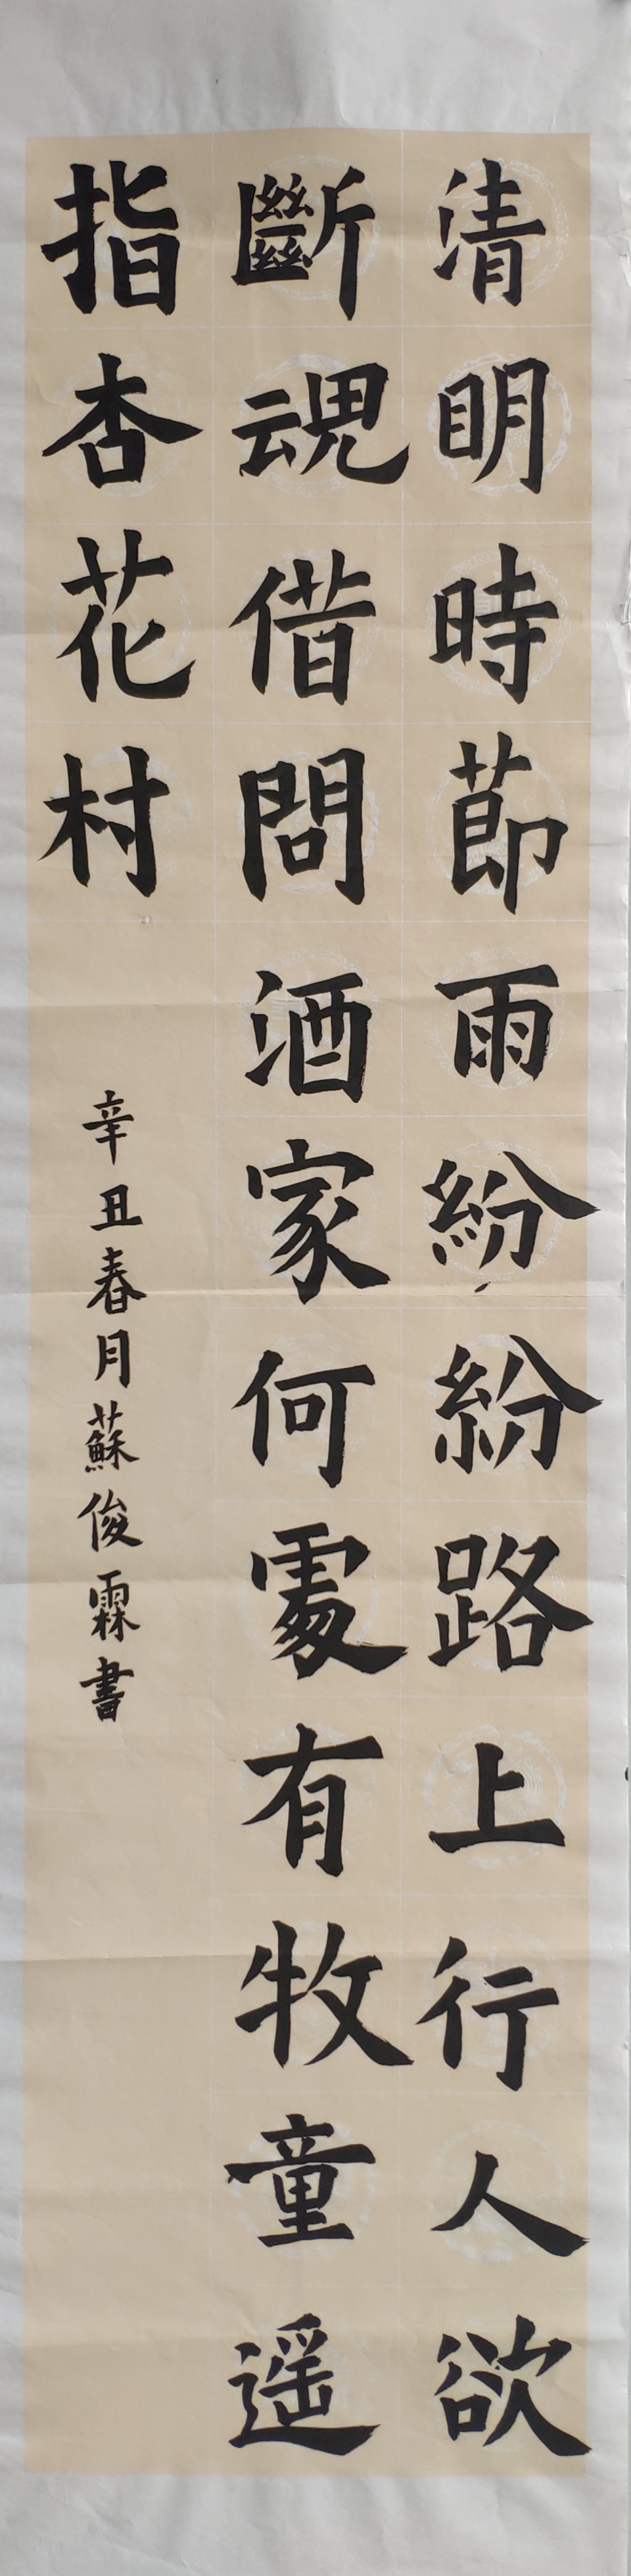 清明時節雨紛紛路上行人欲
斷魂借問酒家何處有牧童遥
指杏花村
辛丑春月蘇俊霖書